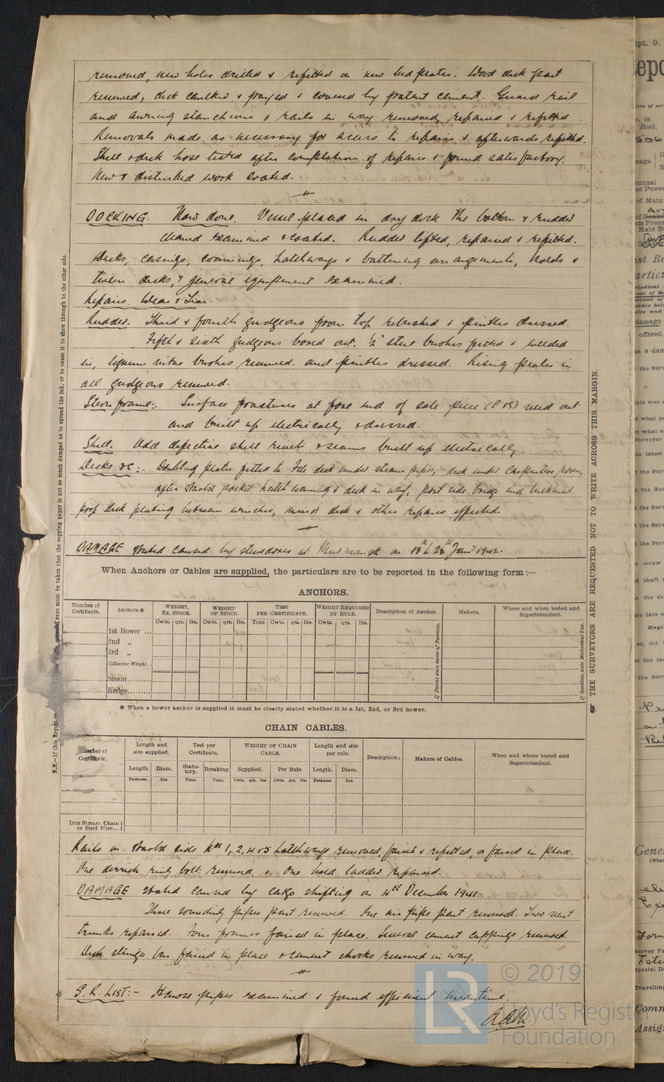 removed, new holes drilled & refitted on new bedplates. Wood deck part
renewed, deck caulked & payed & covered by patent cement. Guard rail
and awning stanchions & rails in way removed, repaired & refitted.
Removals made as necessary for access to repairs & afterwards refitted.
Shell & deck hose tested after completion of repairs & found satisfactory.
New & disturbed work coated.
DOCKING. Now done. Vessel placed in dry dock the bottom & rudder
cleaned examined & coated. Rudder lifted, repaired & refitted.
Decks, casings, coamings, hatchways & battening arrangements, holds &
tween decks, & general equipment examined.
Repairs Wear & Tear.
Rudder. Third & fourth gudgeons from top rebushed & pintles dressed.
Fifth & sixth gudgeons bored out. ½" steel bushes fitted & welded
in, lignum vitae bushes renewed and pintles dressed. Rising plates in
all gudgeons renewed.
Stern frame:- Surface fractures at fore end of sole piece (P&S) veed out
and built up electrically & dressed.
Shell. Odd defective shell rivets & seams built up electrically.
Decks &c:- Doubling plates fitted to deck under steam pipes, deck under Carpenters room,
after starbd pocket hatch coaming & deck in way, port side bridge end bulkhead
poop deck plating between winches, deck & other repairs effected.
DAMAGE stated caused by stevedores at Murmansk on to Jany 1942.
When Anchors or Cables are supplied, the particulars are to be reported in the following form:—
ANCHORS.
Number of Certificate. Anchors.* WEIGHT, EX. STOCK. WEIGHT OF STOCK. TEST PER CERTIFICATE. WEIGHT REQUIRED BY RULE. Description of Anchor. Makers. Where and when tested and Superintendent.
Cwts. qrs. lbs. Cwts. qrs. lbs. Tons cwts. qrs. lbs. Cwts. qrs. lbs.
1st Bower ...
2nd „
3rd „
Collective Weight.
Stream
Kedge
* When a bower anchor is supplied it must be clearly stated whether it is a 1st, 2nd, or 3rd bower.
CHAIN CABLES.
Number of Certificate. Length and size supplied. Test per Certificate. WEIGHT OF CHAIN CABLE. Length and size per rule. Description. Makers of Cables. When and where tested and Superintendent.
Length. Diam. Statutory. Breaking. Supplied. Per Rule. Length. Diam.
Fathoms. Ins. Tons. Tons. Cwts. qrs. lbs Cwts. qrs. lbs Fathoms. Ins.
Iron Stream Chain or Steel Wire...
Rails on starbd side Nos 1, 2, 4 & 5 hatchways removed, faired & refitted, or faired in place.
One derrick ring bolt renewed & one hold ladder repaired.
DAMAGE stated caused by cargo shifting on 4th December 1941.
Three sounding pipes part renewed. One air pipe part renewed. Two vent
trunks repaired. Four frames faired in place. Several cement cappings renewed.
faired in place & cement chocks renewed in way.
S.R. LIST:- Hawse pipes examined & found efficient meantime.
THE SURVEYORS ARE REQUESTED NOT TO WRITE ACROSS THIS MARGIN.
© 2019
LR
Lloyd's Register
Foundation